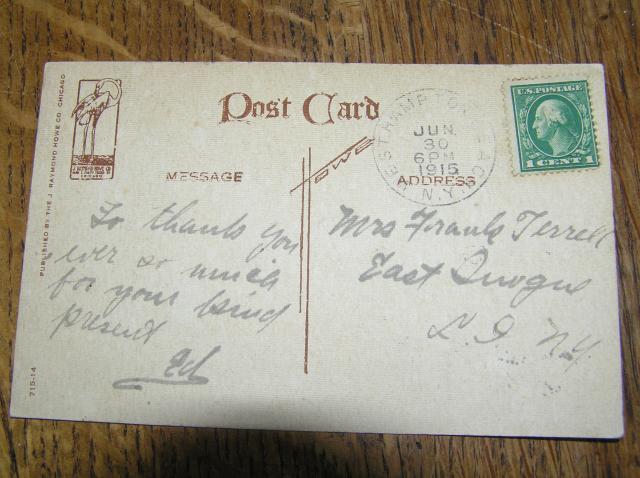 PUBLISHED BY THE J. RAYMOND HOWE CO. CHICAGO
Post Card
WESTHAMPTON BEACH
JUN
30
6 PM
1915
N.Y.
U.S. POSTAGE
1 CENT 1
MESSAGE
HOWE
ADDRESS
To thank you
ever so much
for your kind
present
Ed
Mrs Frank Terrell
East Quogue
L. I. N.Y.
715-14